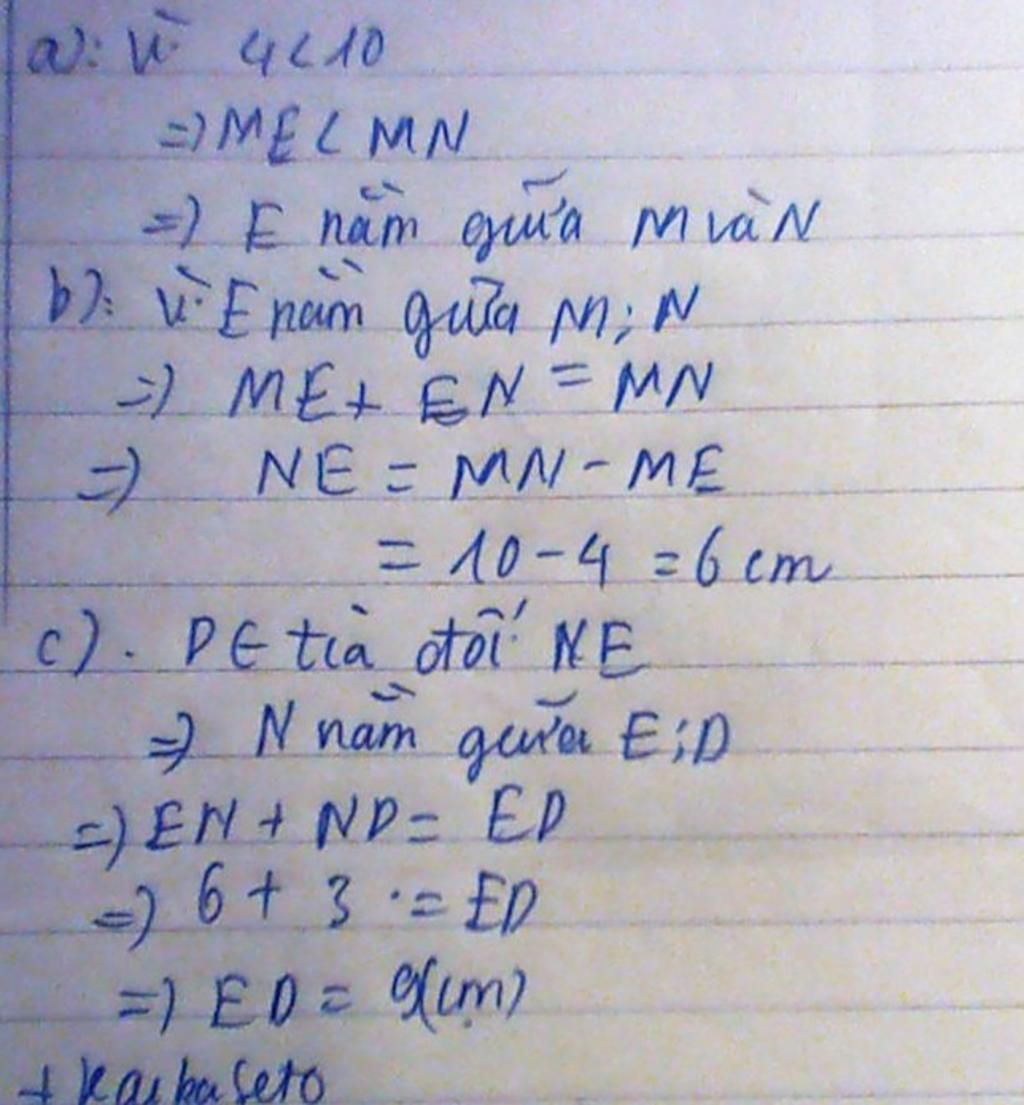 a): Vì 4 < 10
=) ME < MN
=) E nằm giữa M và N
b): Vì E nằm giữa M; N
=) ME + EN = MN
=) NE = MN - ME
= 10 - 4 = 6 cm
c). D ∈ tia đối NE
=) N nằm giữa E; D
=) EN + ND = ED
=) 6 + 3 = ED
=) ED = 9(cm)
+ Kaibaseto